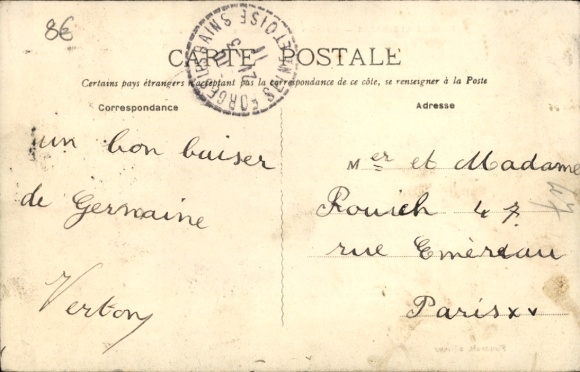 8€
CARTE POSTALE
Certains pays étrangers n'acceptant pas la correspondance de ce côte, se renseigner à la Poste
Correspondance
Adresse
un bon baiser
de Germaine
Verton
Mer et Madame
Rouich 47
rue Emériau
Paris xv